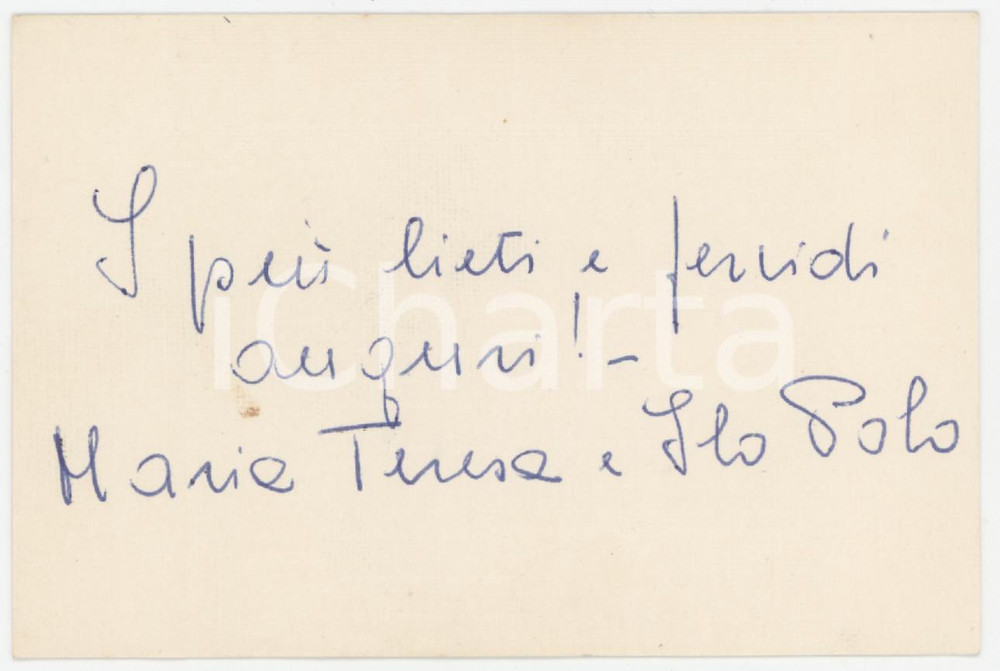 I più lieti e fervidi
auguri! -
Maria Teresa e Ilo Polo
iCharta